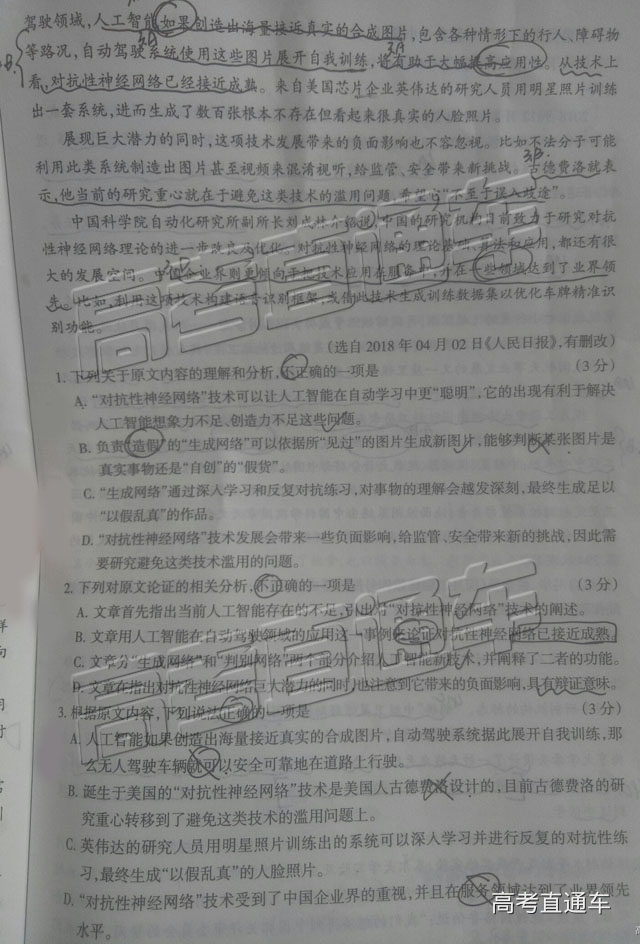 驾驶领域,人工智能如果创造出海量接近真实的合成图片,包含各种情形下的行人、障碍物
等路况,自动驾驶系统使用这些图片展开自我训练,将有助于大幅提高应用性。从技术上
看,对抗性神经网络已经接近成熟。来自美国芯片企业英伟达的研究人员用明星照片训练
出一套系统,进而生成了数百张根本不存在但看起来很真实的人脸照片。
展现巨大潜力的同时,这项技术发展带来的负面影响也不容忽视。比如不法分子可能
利用此类系统制造出图片甚至视频来混淆视听,给监管、安全带来新挑战。古德费洛就表
示,他当前的研究重心就在于避免这类技术的滥用问题,希望它“不至于误入歧途”。
中国科学院自动化研究所副所长刘成林介绍说,中国的研究机构目前致力于研究对抗
性神经网络理论的进一步改良及优化。对抗性神经网络的理论基础、算法和应用,都还有很
大的发展空间。中国企业界则更倾向于把技术应用在服务中,并在一些领域达到了业界领
先。比如,利用这项技术构建语音识别框架,或借此技术生成训练数据集以优化车牌精准识
别功能。
(选自2018年04月02日《人民日报》,有删改)
1. 下列关于原文内容的理解和分析,不正确的一项是 (3分)
A. “对抗性神经网络”技术可以让人工智能在自动学习中更“聪明”,它的出现有利于解决
人工智能想象力不足、创造力不足这些问题。
B. 负责“造假”的“生成网络”可以依据所“见过”的图片生成新图片,能够判断某张图片是
真实事物还是“自创”的“假货”。
C. “生成网络”通过深入学习和反复对抗练习,对事物的理解会越发深刻,最终生成足以
“以假乱真”的作品。
D. “对抗性神经网络”技术发展会带来一些负面影响,给监管、安全带来新的挑战,因此需
要研究避免这类技术滥用的问题。
2. 下列对原文论证的相关分析,不正确的一项是 (3分)
A. 文章首先指出当前人工智能存在的不足,引出对“对抗性神经网络”技术的阐述。
B. 文章用人工智能在自动驾驶领域的应用这一事例来论证对抗性神经网络已接近成熟。
C. 文章分“生成网络”和“判别网络”两个部分介绍人工智能新技术,并阐释了二者的功能。
D. 文章在指出对抗性神经网络巨大潜力的同时,也注意到它带来的负面影响,具有辩证意味。
3. 根据原文内容,下列说法正确的一项是 (3分)
A. 人工智能如果创造出海量接近真实的合成图片,自动驾驶系统据此展开自我训练,那
么无人驾驶车辆就可以安全可靠地在道路上行驶。
B. 诞生于美国的“对抗性神经网络”技术是美国人古德费洛设计的,目前古德费洛的研
究重心转移到了避免这类技术的滥用问题上。
C. 英伟达的研究人员用明星照片训练出的系统可以深入学习并进行反复的对抗性练
习,最终生成“以假乱真”的人脸照片。
D. “对抗性神经网络”技术受到了中国企业界的重视,并且在服务领域达到了业界领先
水平。
高考直通车
高考直通车
高考直通车